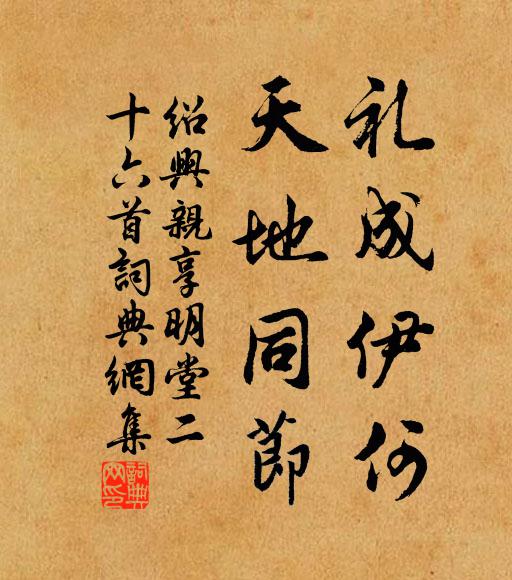 礼成伊何
天地同節
绍興親享明堂二
十六首詞典網集
詞典
网印